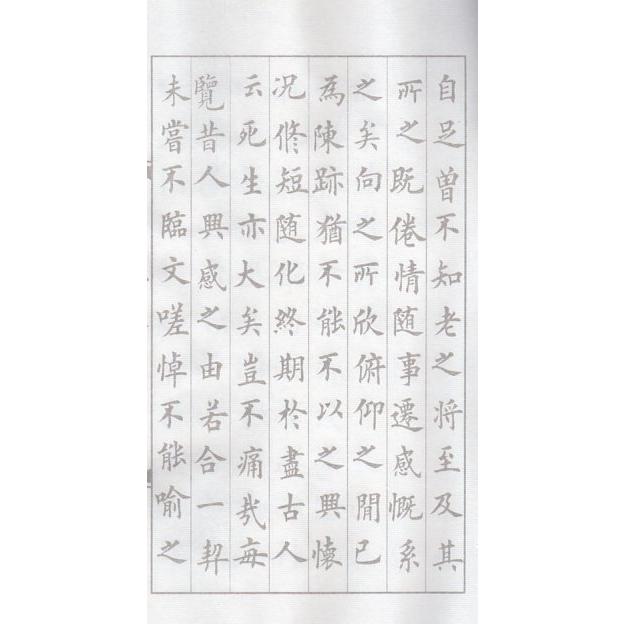 自足曽不知老之將至及其
所之既倦情随事遷感慨系
之矣向之所欣俯仰之閒已
為陳跡猶不能不以之興懷
况脩短随化終期於盡古人
云死生亦大矣豈不痛哉每
覽昔人興感之由若合一契
未嘗不臨文嗟悼不能喻之